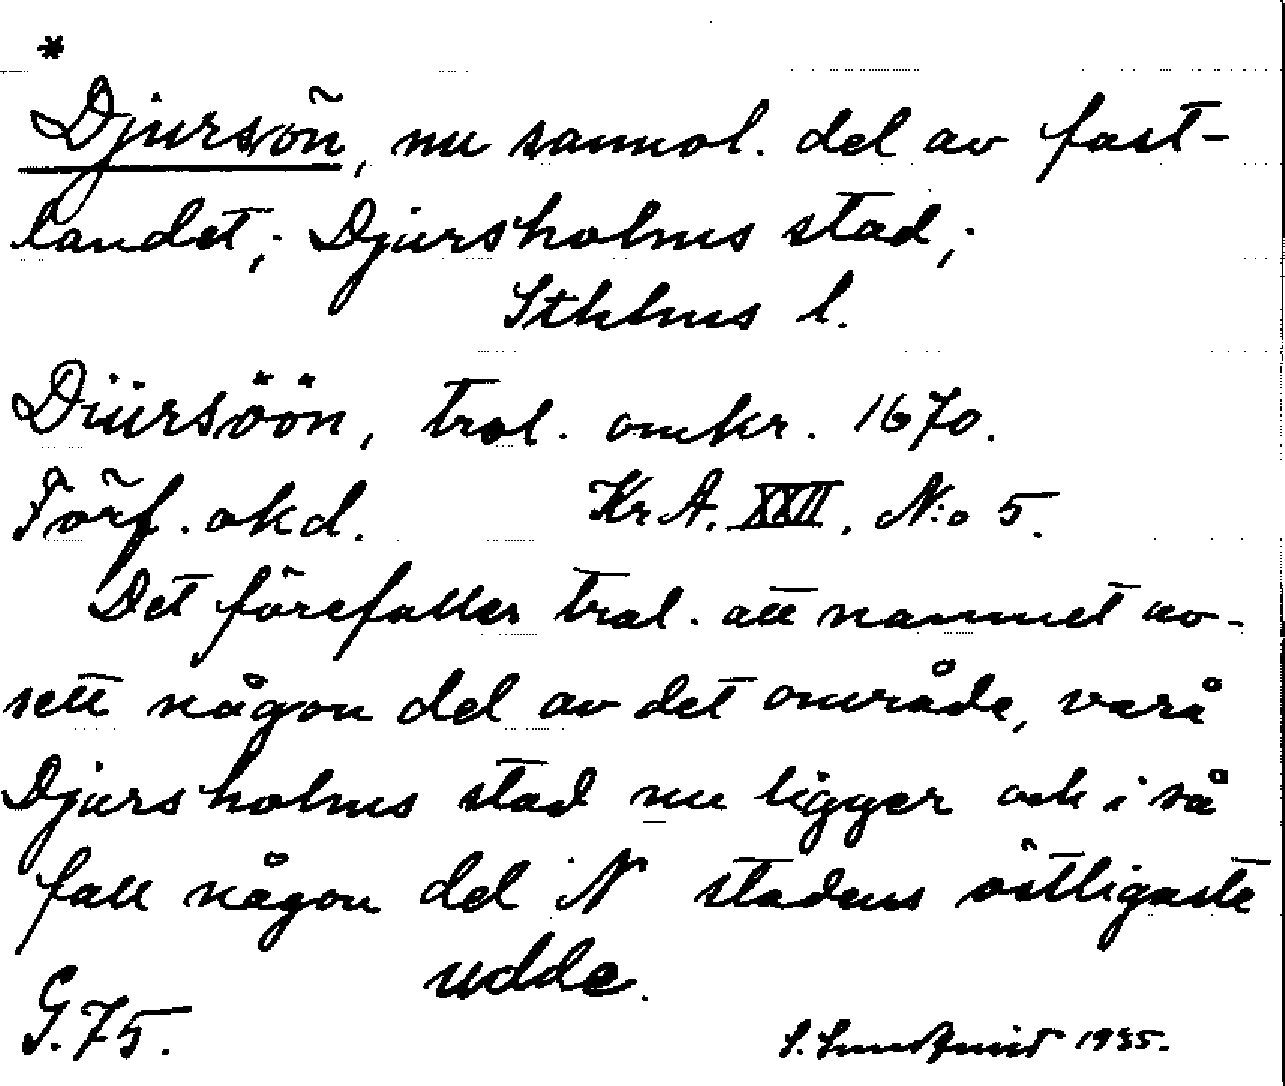 *
Djursön, nu sannol. del av fast-
landet; Djursholms stad;
Sthlms l.
Diürsöön, trol. omkr. 1670.
Förf. okd. Kr A. XXII. N:o 5.
Det förefaller trol. att namnet av-
sett någon del av det område, varå
Djursholms stad nu ligger och i så
fall någon del N stadens östligaste
udde.
G. 75. S. Sundqvist 1935.